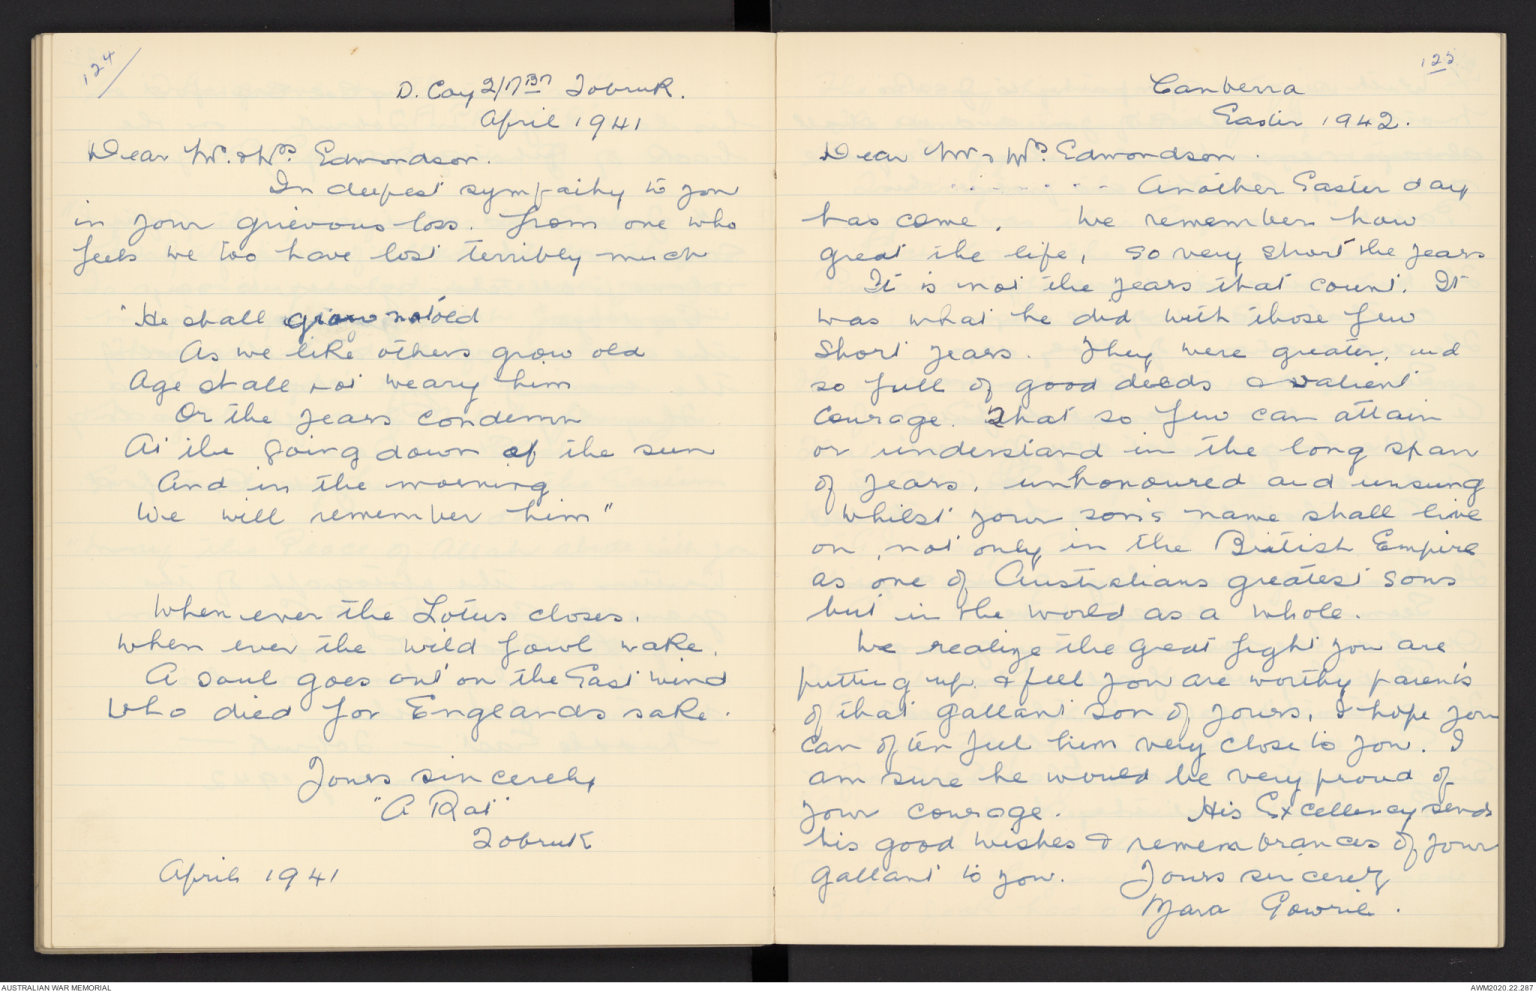 124
D. Coy 2/17 Bn Tobruk.
April 1941
Dear Mr. & Mrs. Edmondson.
In deepest sympathy to you
in your grievous loss. from one who
feels we too have lost terribly much
"He shall grow not old
As we like others grow old
Age shall not weary him
Or the years condemn
At the going down of the sun
And in the morning
We will remember him"
When ever the Lotus closes.
When ever the wild fowl wake.
A soul goes out on the East wind
Who died for Englands sake.
Yours sincerely
"A Rat"
Tobruk
April 1941
125
Canberra
Easter 1942.
Dear Mr & Mrs. Edmondson.
. . . . . . . Another Easter day
has come. We remember how
great the life, so very short the years
It is not the years that count. It
was what he did with those few
short years. They were greater, and
so full of good deeds & valient
courage. That so few can attain
or understand in the long span
of years, unhonoured and unsung
Whilst your son's name shall live
on, not only in the British Empire
as one of Australians greatest sons
but in the world as a whole.
We realize the great fight you are
putting up. & feel you are worthy parents
of that gallant son of yours, I hope you
can often feel him very close to you. I
am sure he would be very proud of
your courage. His Excellency sends
his good wishes & remembrances of your
gallant to you. Yours sincerely
Zara Gowrie.
AUSTRALIAN WAR MEMORIAL
AWM2020.22.287